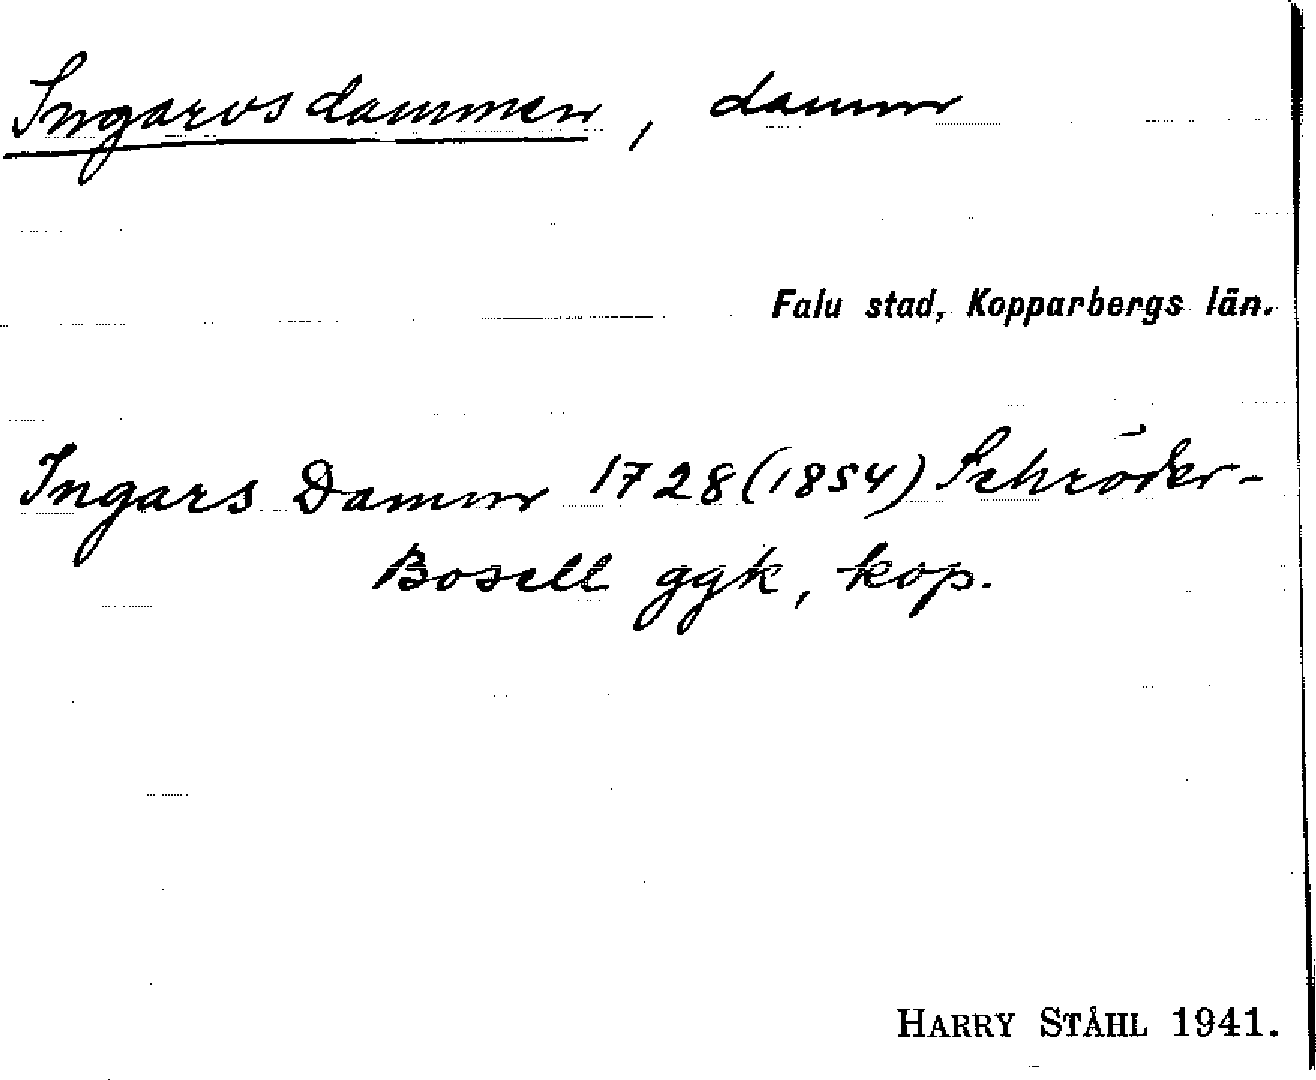 Ingarvsdammen, damm
Falu stad, Kopparbergs län.
Ingars Damm 1728 (1854) Schröder-
Bosell ggk, kop.
HARRY STÅHL 1941.